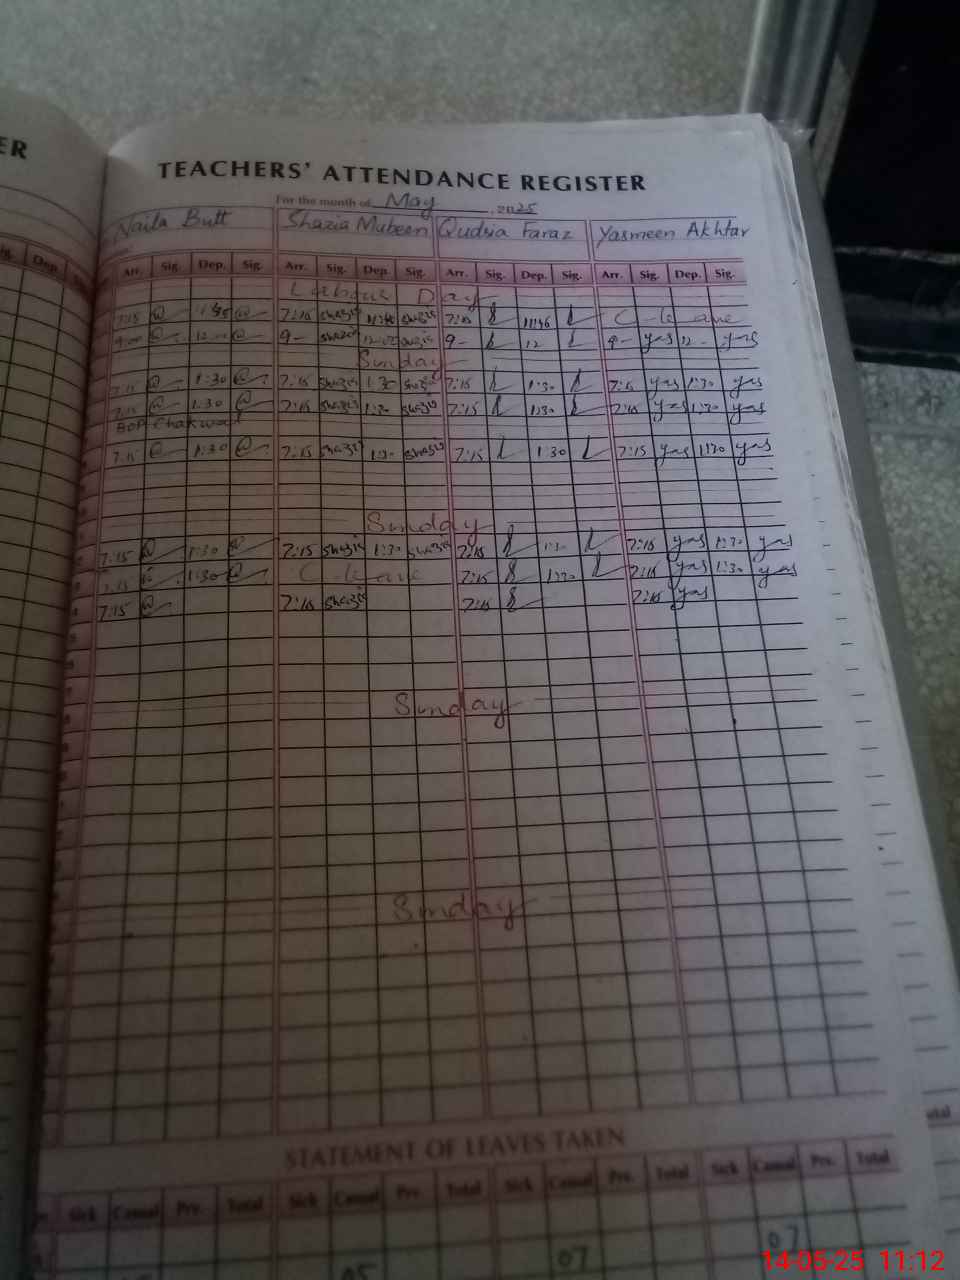 ER
TEACHERS' ATTENDANCE REGISTER
For the month of May, 2025
Naila Butt Shazia Mubeen Qudsia Faraz Yasmeen Akhtar
Dep. Arr. Sig. Dep. Sig. Arr. Sig. Dep. Sig. Arr. Sig. Dep. Sig. Arr. Sig. Dep. Sig.
Labour Day
7:15 7:15 shazia 11:46 shazia 7:15 11:46 C-leave
9:00 9- 12 9- 12 9- yas 12- yas
Sunday
7:15 1:30 7:15 shazia 1:30 shazia 7:15 1:30 7:15 yas 1:30 yas
7:15 1:30 7:15 shazia 1:30 shazia 7:15 1:30 7:15 yas 1:30 yas
BOP Chakwal
7:15 1:30 7:15 shazia 1:30 shazia 7:15 1:30 7:15 yas 1:30 yas
Sunday
7:15 1:30 7:15 shazia 1:30 shazia 7:15 1:30 7:15 yas 1:30 yas
7:15 1:30 C-leave 7:15 1:30 7:15 yas 1:30 yas
7:15 7:15 shazia 7:15 7:15 yas
Sunday
Sunday
STATEMENT OF LEAVES TAKEN
Sick Casual Prv. Total Sick Casual Prv. Total Sick Casual Prv. Total Sick Casual Prv. Total
05 07 07
14-05-25 11:12